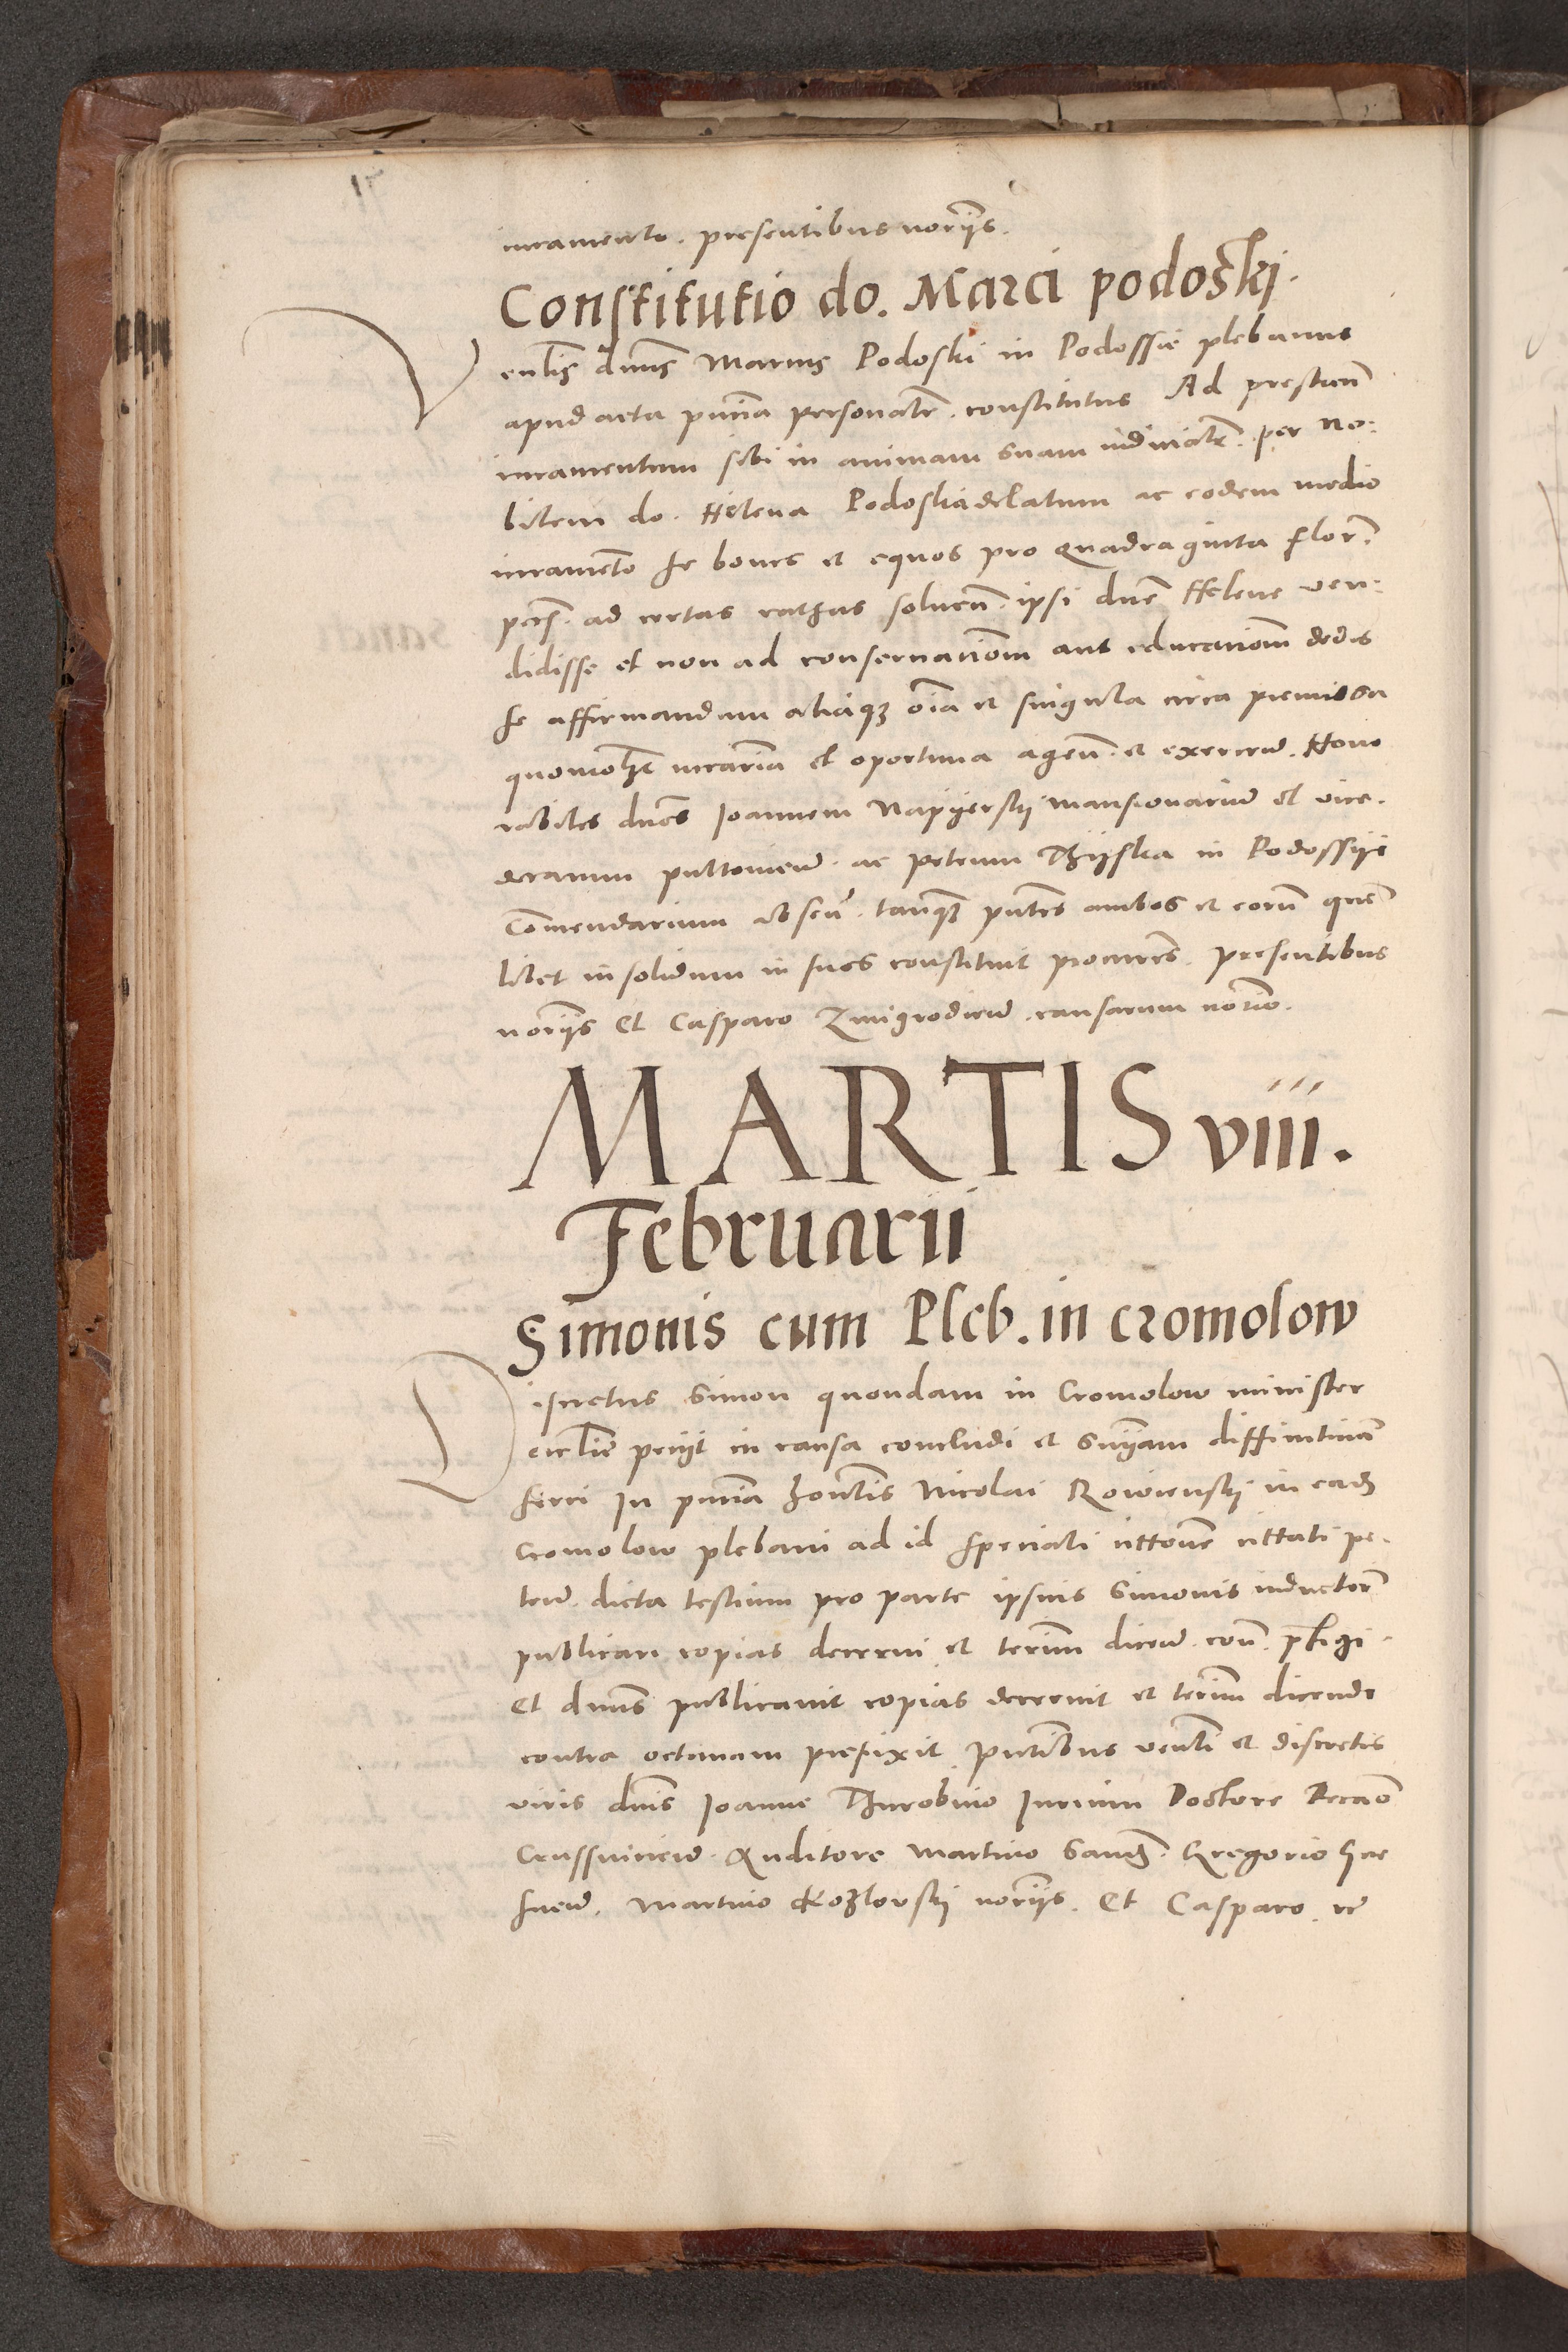 iuramento. presentibus norijs.
Constitutio do. Marci podoski.
Venlis dnus Marcus Podoski in Podossie plebanus
apud acta pntia personalr. constitutus Ad prestand
iuramentum sibi in animam suam iudicialr. per no:
bilem do. Helena Podoska delatum ac eodem medio
iuramento se boves et equos pro quadraginta flor.
ad certas rathas solvend. ipsi dne Helene ven:
didisse et non ad conservationem aut educationem dedis
se affirmandum aliaque oia et singula circa premissa
necaria et oportuna agend. et exercend. Hono
rabiles dnos Ioannem Napyerskij mansionarium et vice.
decanum pultovien. ac petrum Thyska in Podossije
Comendarium absen. tanq pntes ambos et eorum quem
libet in solidum in suos constituit procures. presentibus
norijs Et Casparo Zmigrodien. causarum norio.
MARTIS viii.
Februarii
Simonis cum Pleb. in cromolow
Discretus Simon quondam in Cromolow minister
ecclie petijt in causa concludi et snijam diffinitivam
ferri In pntia honlis Nicolai Rowienskij in eadem
Cromolow plebani ad id speciali cittone cittati pe.
ten. dicta testium pro parte ipsius Simonis inductorum
publicari copias decerni et terim dicend. con. pfigi.
Et dnus publicavit copias decrevit et terim dicendi
contra octavam prefixit pntibus venli et discretis
viris dnis Ioanne Thurobino Iurium Doctore Decano
Crussvicien. Auditore Martino Gregorio
Martino Kozlovskij norijs. Et Casparo